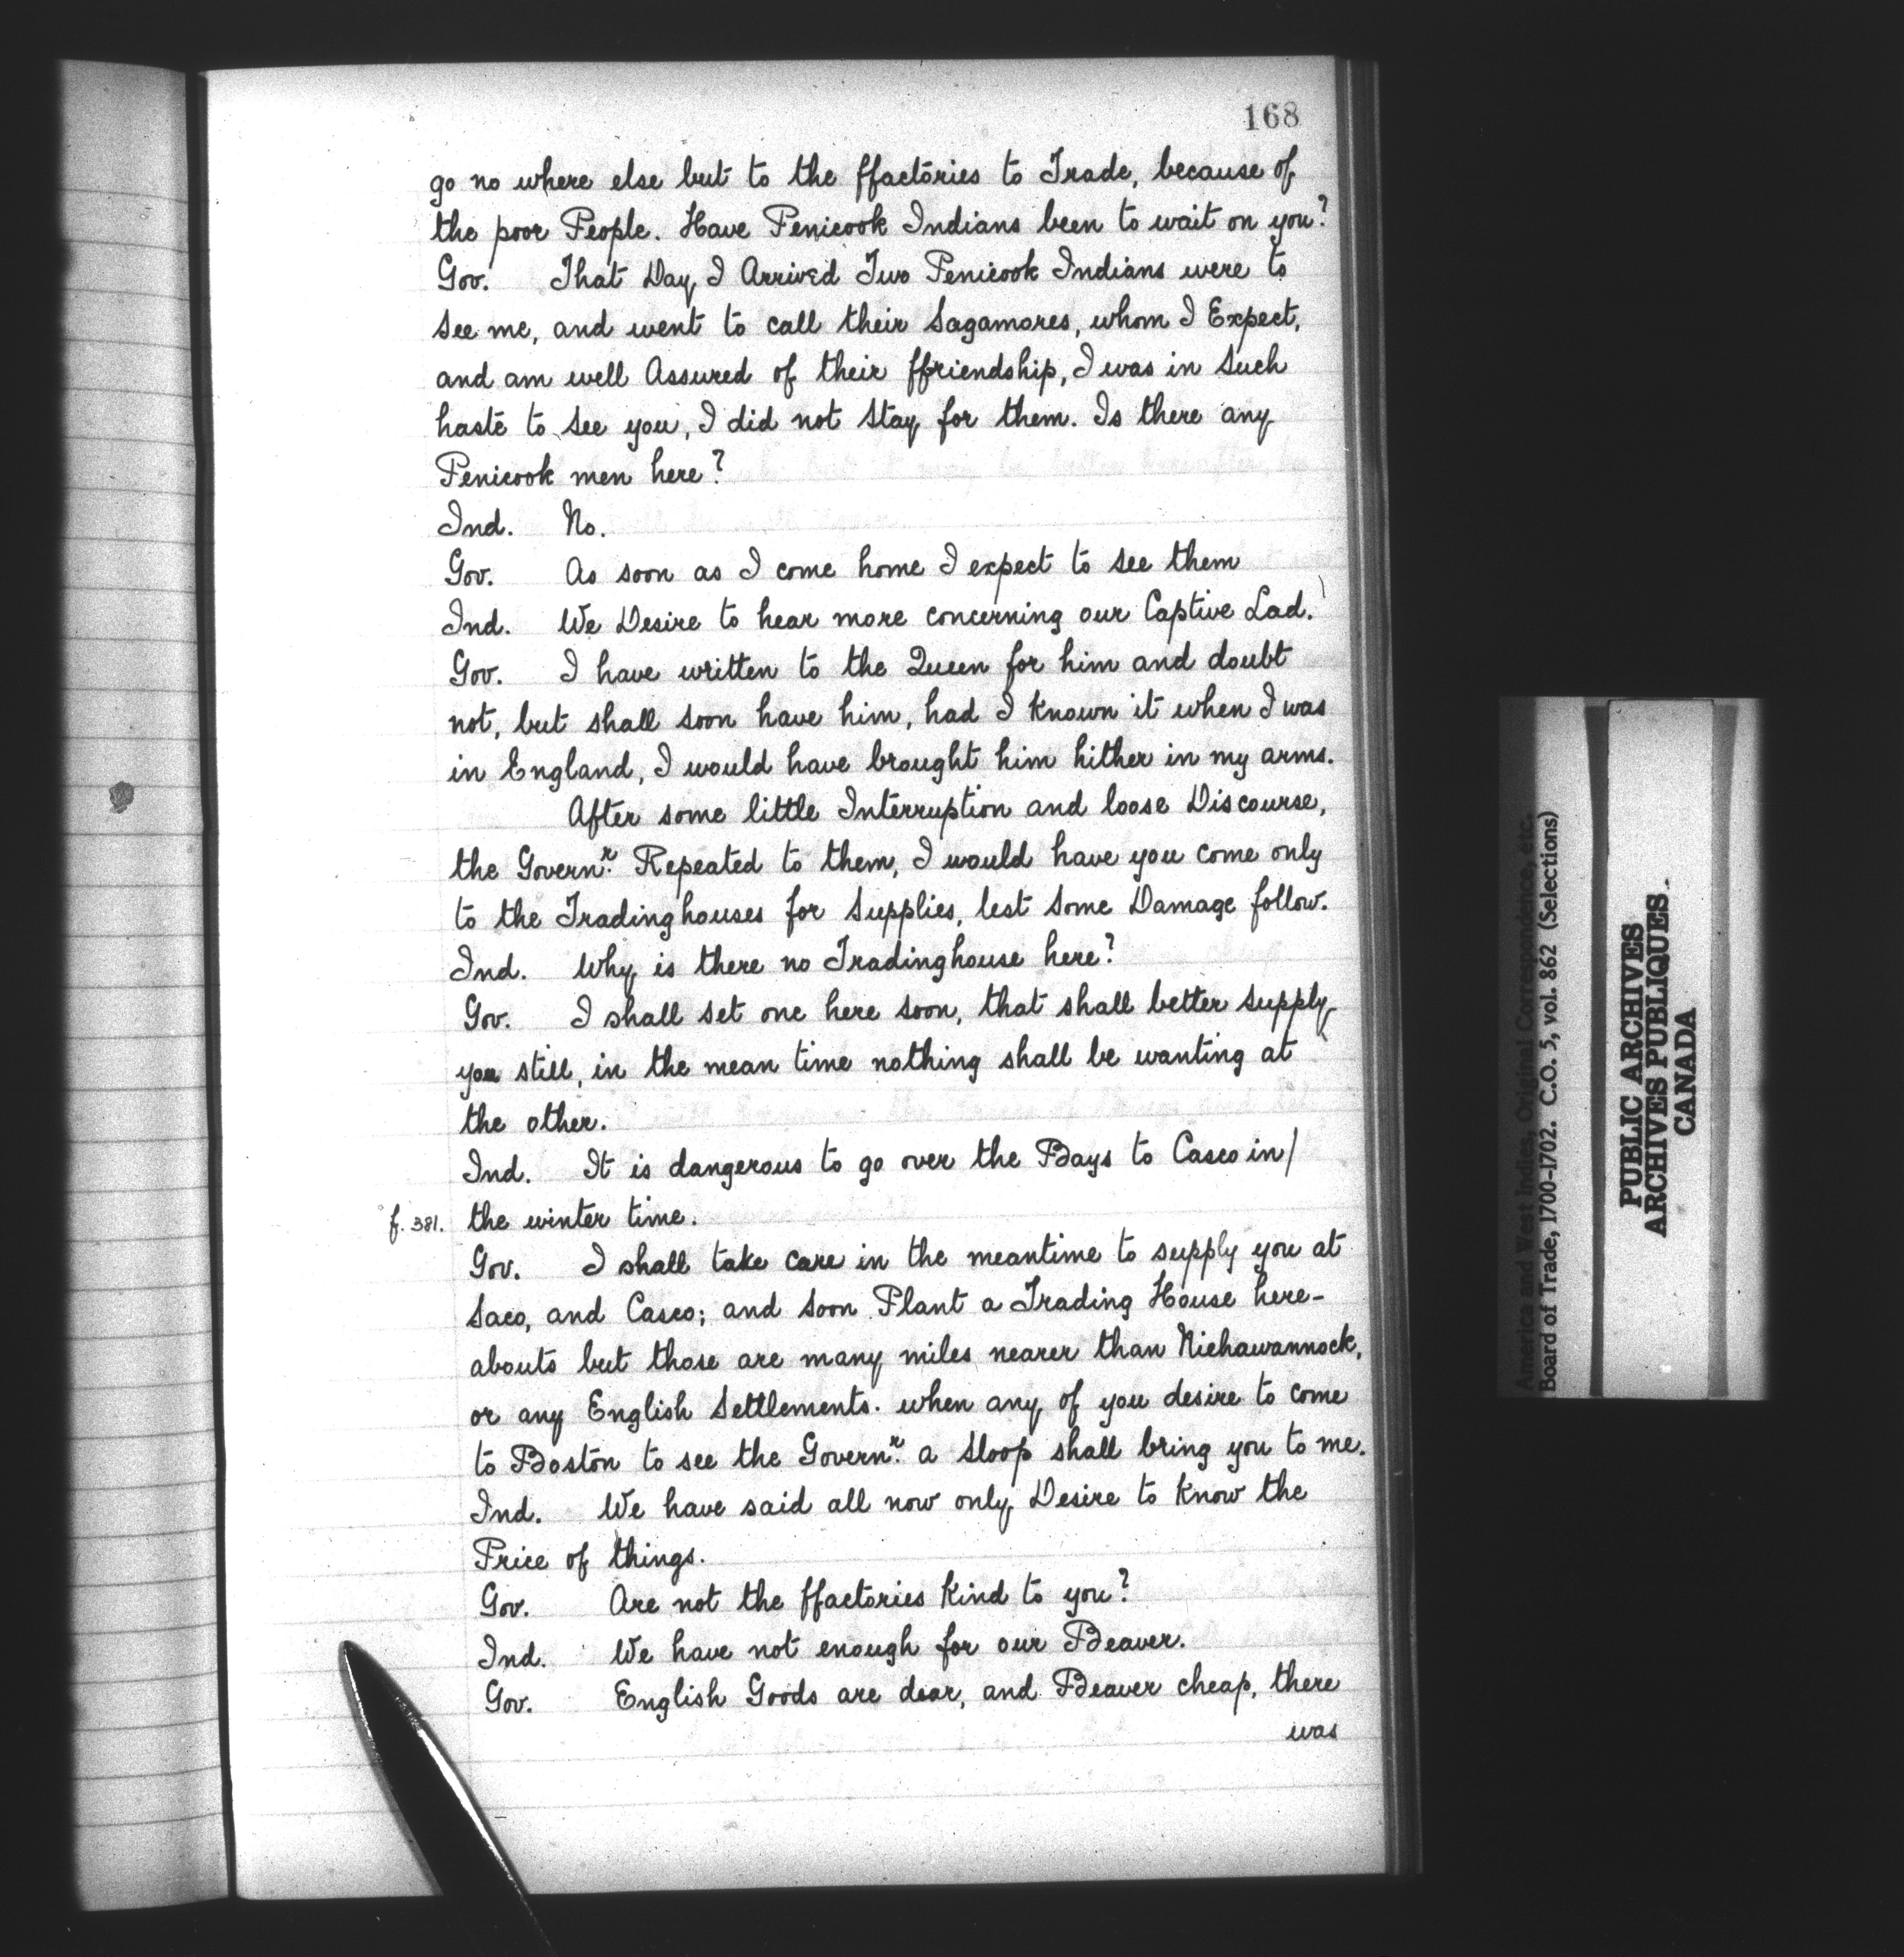 168
go no where else but to the ffactories to Trade, because of
the poor People. Have Penicook Indians been to wait on you?
Gov. That Day I Arrived Two Penicook Indians were to
See me, and went to call their Sagamores, whom I Expect,
and am well Assured of their ffriendship, I was in Such
haste to See you, I did not Stay for them. Is there any
Penicook men here?
Ind. No.
Gov. As soon as I come home I expect to see them
Ind. We Desire to hear more concerning our Captive Lad.
Gov. I have written to the Queen for him and doubt
not, but shall soon have him, had I known it when I was
in England, I would have brought him hither in my arms.
After some little Interruption and loose Discourse,
the Govern.r Repeated to them, I would have you come only
to the Tradinghouses for Supplies, lest Some Damage follow.
Ind. Why is there no Tradinghouse here?
Gov. I shall set one here soon, that shall better Supply
you still, in the mean time nothing shall be wanting at
the other.
Ind. It is dangerous to go over the Bays to Casco in/
f. 381. the winter time.
Gov. I shall take care in the meantime to supply you at
Saco, and Casco; and Soon Plant a Trading House here-
abouts but those are many miles nearer than Nichawannock,
or any English Settlements. when any of you desire to come
to Boston to see the Govern.r a Sloop shall bring you to me.
Ind. We have said all now only Desire to know the
Price of things.
Gov. Are not the ffactories kind to you?
Ind. We have not enough for our Beaver.
Gov. English Goods are dear, and Beaver cheap, there
was
America and West Indies, Original Correspondence, etc.
Board of Trade, 1700-1702. C.O. 5, vol. 862 (Selections)
PUBLIC ARCHIVES
ARCHIVES PUBLIQUES
CANADA